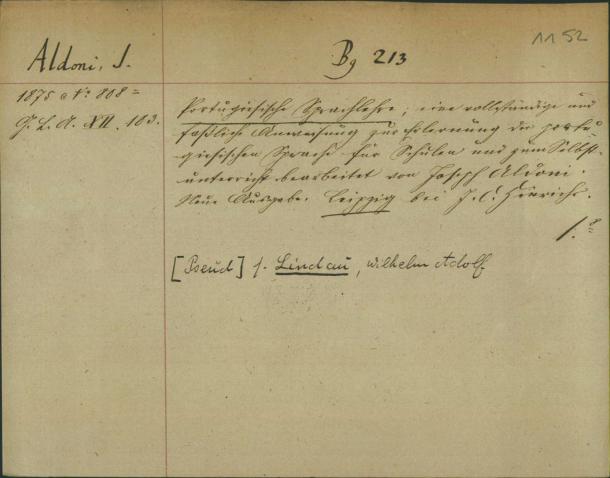 1152
Aldoni, J.
Bg 213
1875 No. 808 =
G. L. A. XII. 103.
Portugiesische Sprachlehre; eine vollständige und
faßliche Anweisung zur Erlernung der portu-
giesischen Sprache für Schulen und zum Selbst-
unterricht bearbeitet von Joseph Aldoni.
Neue Ausgabe. Leipzig bei J. C. Hinrichs.
1. 8°
[Pseud] f. Lindau, Wilhelm Adolf